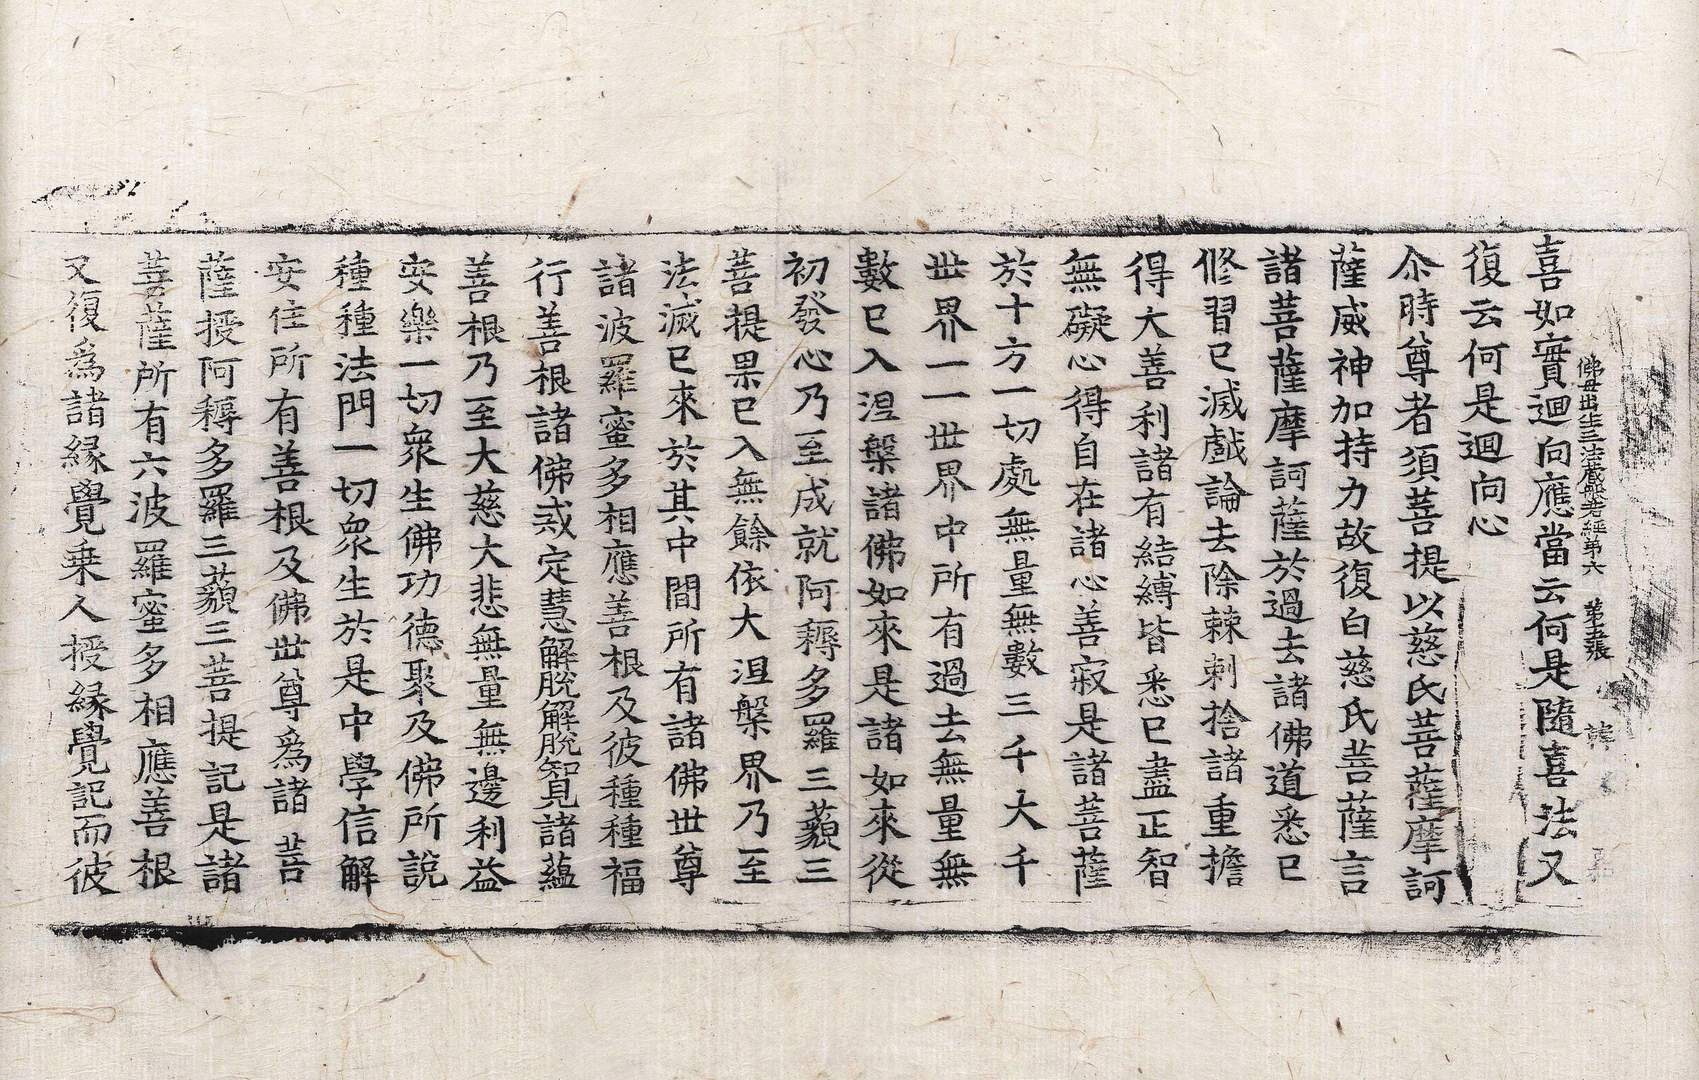 佛母出生三法藏般若經第六 第五張 韓
喜如實迴向應當云何是隨喜法又
復云何是迴向心
尒時尊者須菩提以慈氏菩薩摩訶
薩威神加持力故復白慈氏菩薩言
諸菩薩摩訶薩於過去諸佛道悉已
修習已滅戲論去除棘刺捨諸重擔
得大善利諸有結縛皆悉已盡正智
無礙心得自在諸心善寂是諸菩薩
於十方一切處無量無數三千大千
世界一一世界中所有過去無量無
數已入涅槃諸佛如來是諸如來從
初發心乃至成就阿耨多羅三藐三
菩提果已入無餘依大涅槃界乃至
法滅已來於其中間所有諸佛世尊
諸波羅蜜多相應善根及彼種種福
行善根諸佛戒定慧解脫解脫智見諸蘊
善根乃至大慈大悲無量無邊利益
安樂一切衆生佛功德聚及佛所說
種種法門一切衆生於是中學信解
安住所有善根及佛世尊爲諸菩
薩授阿耨多羅三藐三菩提記是諸
菩薩所有六波羅蜜多相應善根
又復爲諸緣覺乘人授緣覺記而彼